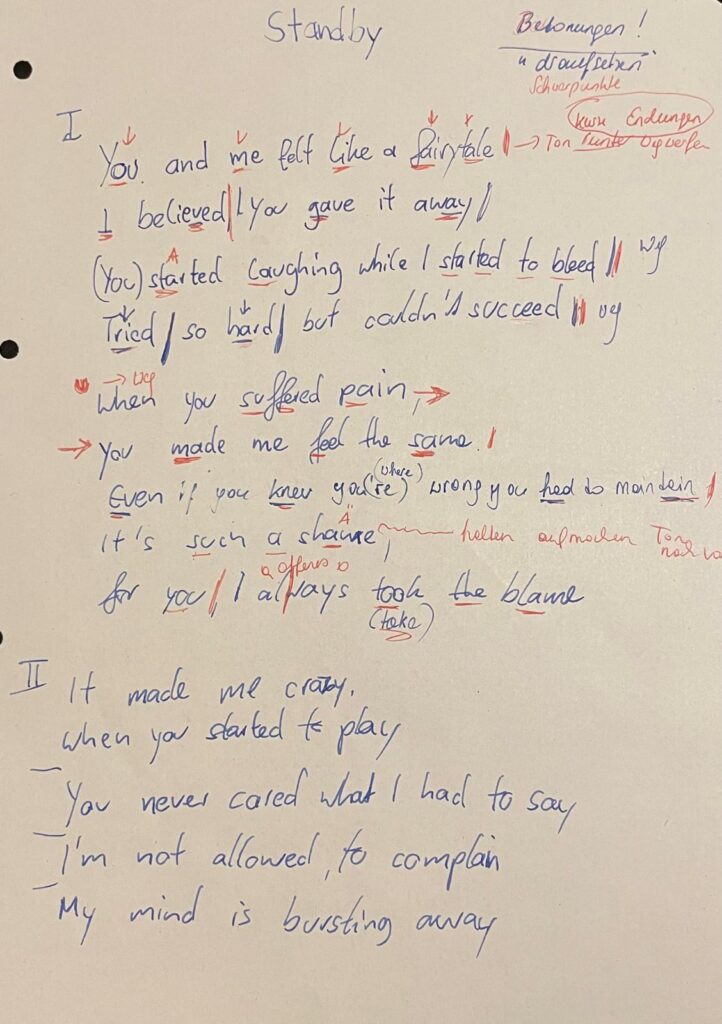 Standby
Betonungen !
"draufsetzen"
Schwerpunkte
kurze Endungen
I
You and me felt like a fairytale | → Ton runter wegwerfen
I believed | You gave it away |
A
(You) started laughing while I started to bleed || wg
Tried | so hard | but couldn't succeed || wg
→ weg
When you suffered pain, →
→ You made me feel the same. |
(where)
Even if you knew you('re) wrong you had to maintain |
Ä
It's such a shame, halten aufmachen Ton
a offenes a
for you |, I al|ways took the blame
(take)
II
It made me crazy,
when you started to play
You never cared what I had to say
I'm not allowed, to complain
My mind is bursting away